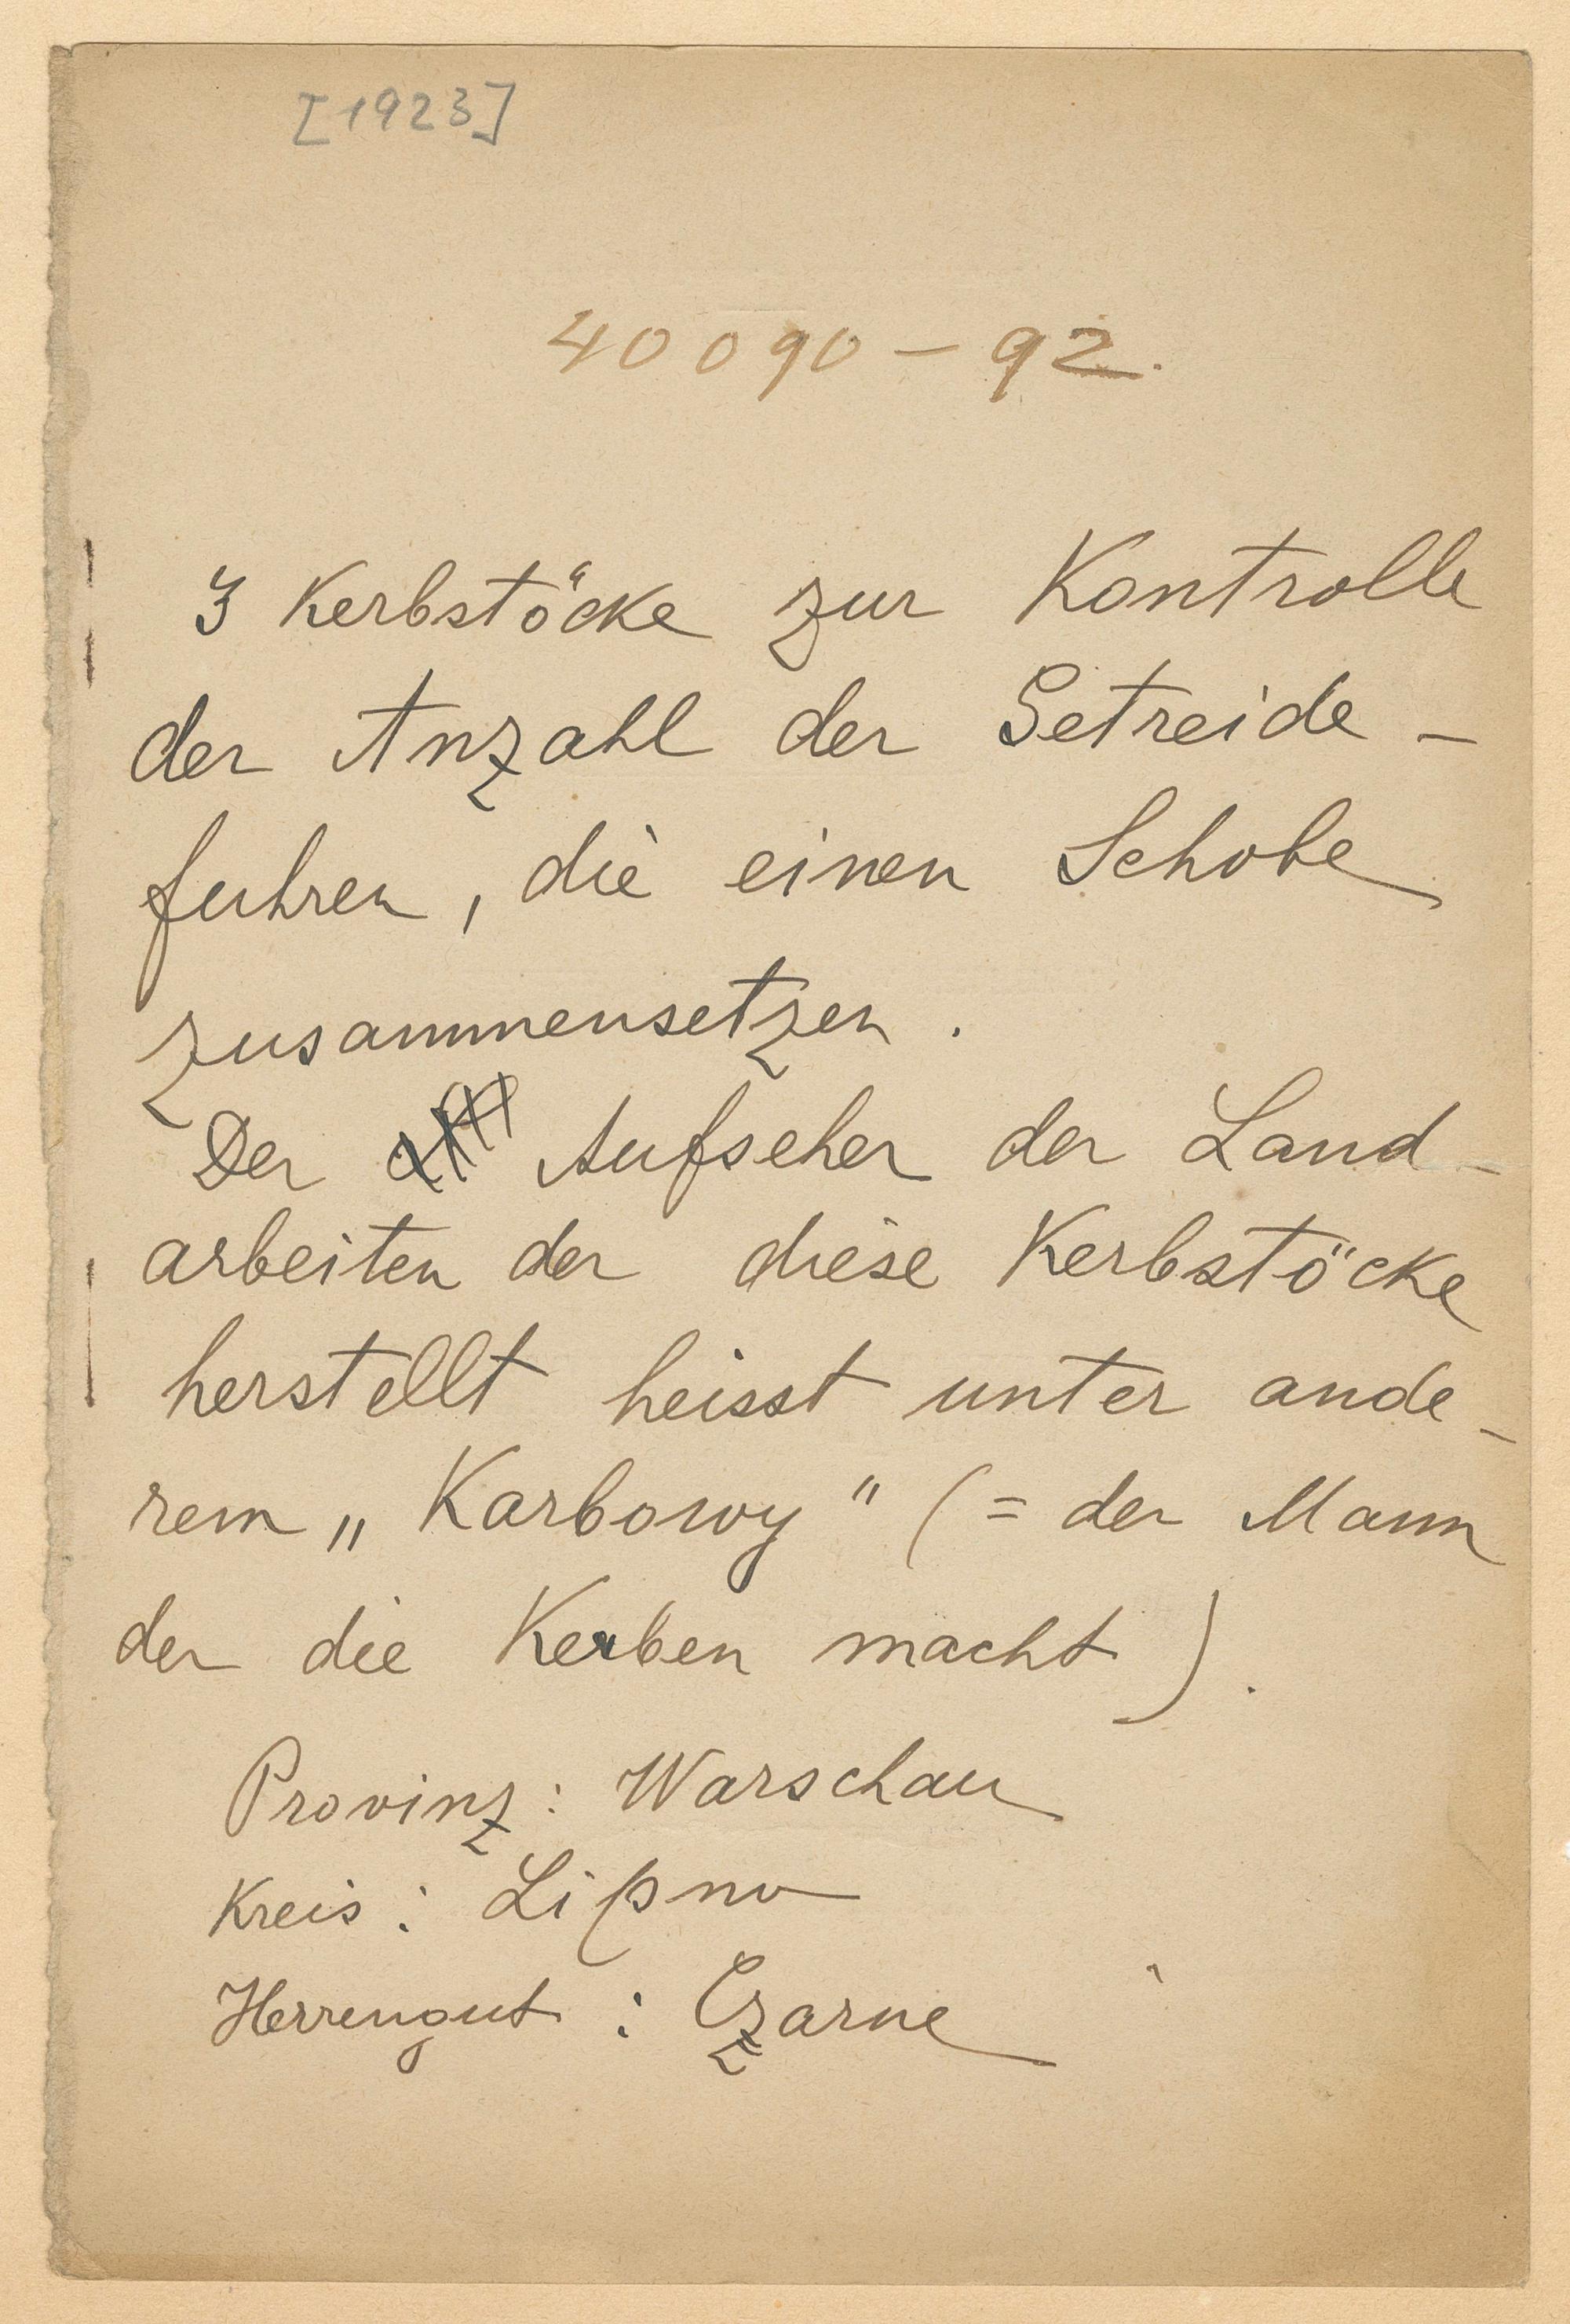 [1923]
40090-92.
3 Kerbstöcke zur Kontrolle
der Anzahl der Getreide-
fuhren, die einen Schobe
zusammensetzen.
Der Aufseher der Land-
arbeiten der diese Kerbstöcke
herstellt heisst unter ande-
rem „Karbowy“ (= der Mann
der die Kerben macht).
Provinz: Warschau
Kreis: Lipno
Herrengut: Czarne